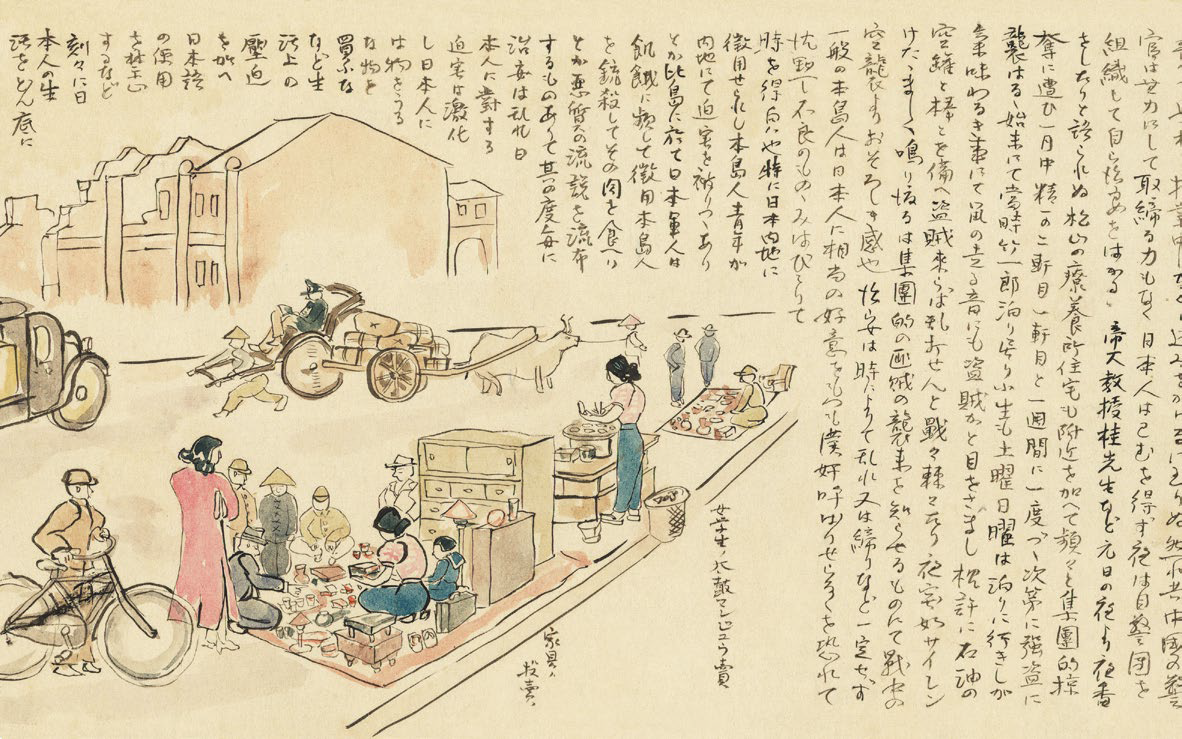 官は無力にして取締る力もなく日本人は已むを得ず夜は自警団を
組織して自ら治安をはかる、帝大教授桂先生など元日の夜より夜番
をしたりと語られぬ 松山の療養所住宅も附近を加へて頻々と集團的掠
奪に遭ひ一月中精一の二軒目、一軒目と一週間に一度づゝ次第に強盗に
襲はる、始末にて当時竹一郎泊り居り小生も土曜日曜は泊りに行きしが
気味わるき事にて風の立る音にも盗賊かと目をさまし枕許に石油の
空罐と棒とを備へ盗賊来らば乱打せんと戦々兢々たり夜突如サイレン
けたゝましく鳴り渡るは集團的匪賊の襲来を知らせるものにて戦中の
空襲よりおそろしき感也 治安は時によりて乱れ又は締りなど一定せず
一般の本島人は日本人に相当の好意をもつも漢奸呼はりせらるゝを恐れて
沈黙し不良のもののみはびこりて
時を得 特に日本内地に
徴用せられし本島人青年が
内地にて迫害を蒙りつゝあり
とか比島に於て日本軍人は
飢餓に瀕して徴用本島人
を銃殺してその肉を食へり
とか悪質の流説を流布
するものありて其の度毎に
治安は乱れ日
本人に対する
迫害は激化
し日本人に
は物をうる
な物を
買ふな
など生
活上の
壓迫
を加へ
日本語
の使用
を禁止
するなど
刻々に日
本人の生
活をどん底に
女学生ノ太鼓マンジュウ賣
家具ノ
投賣